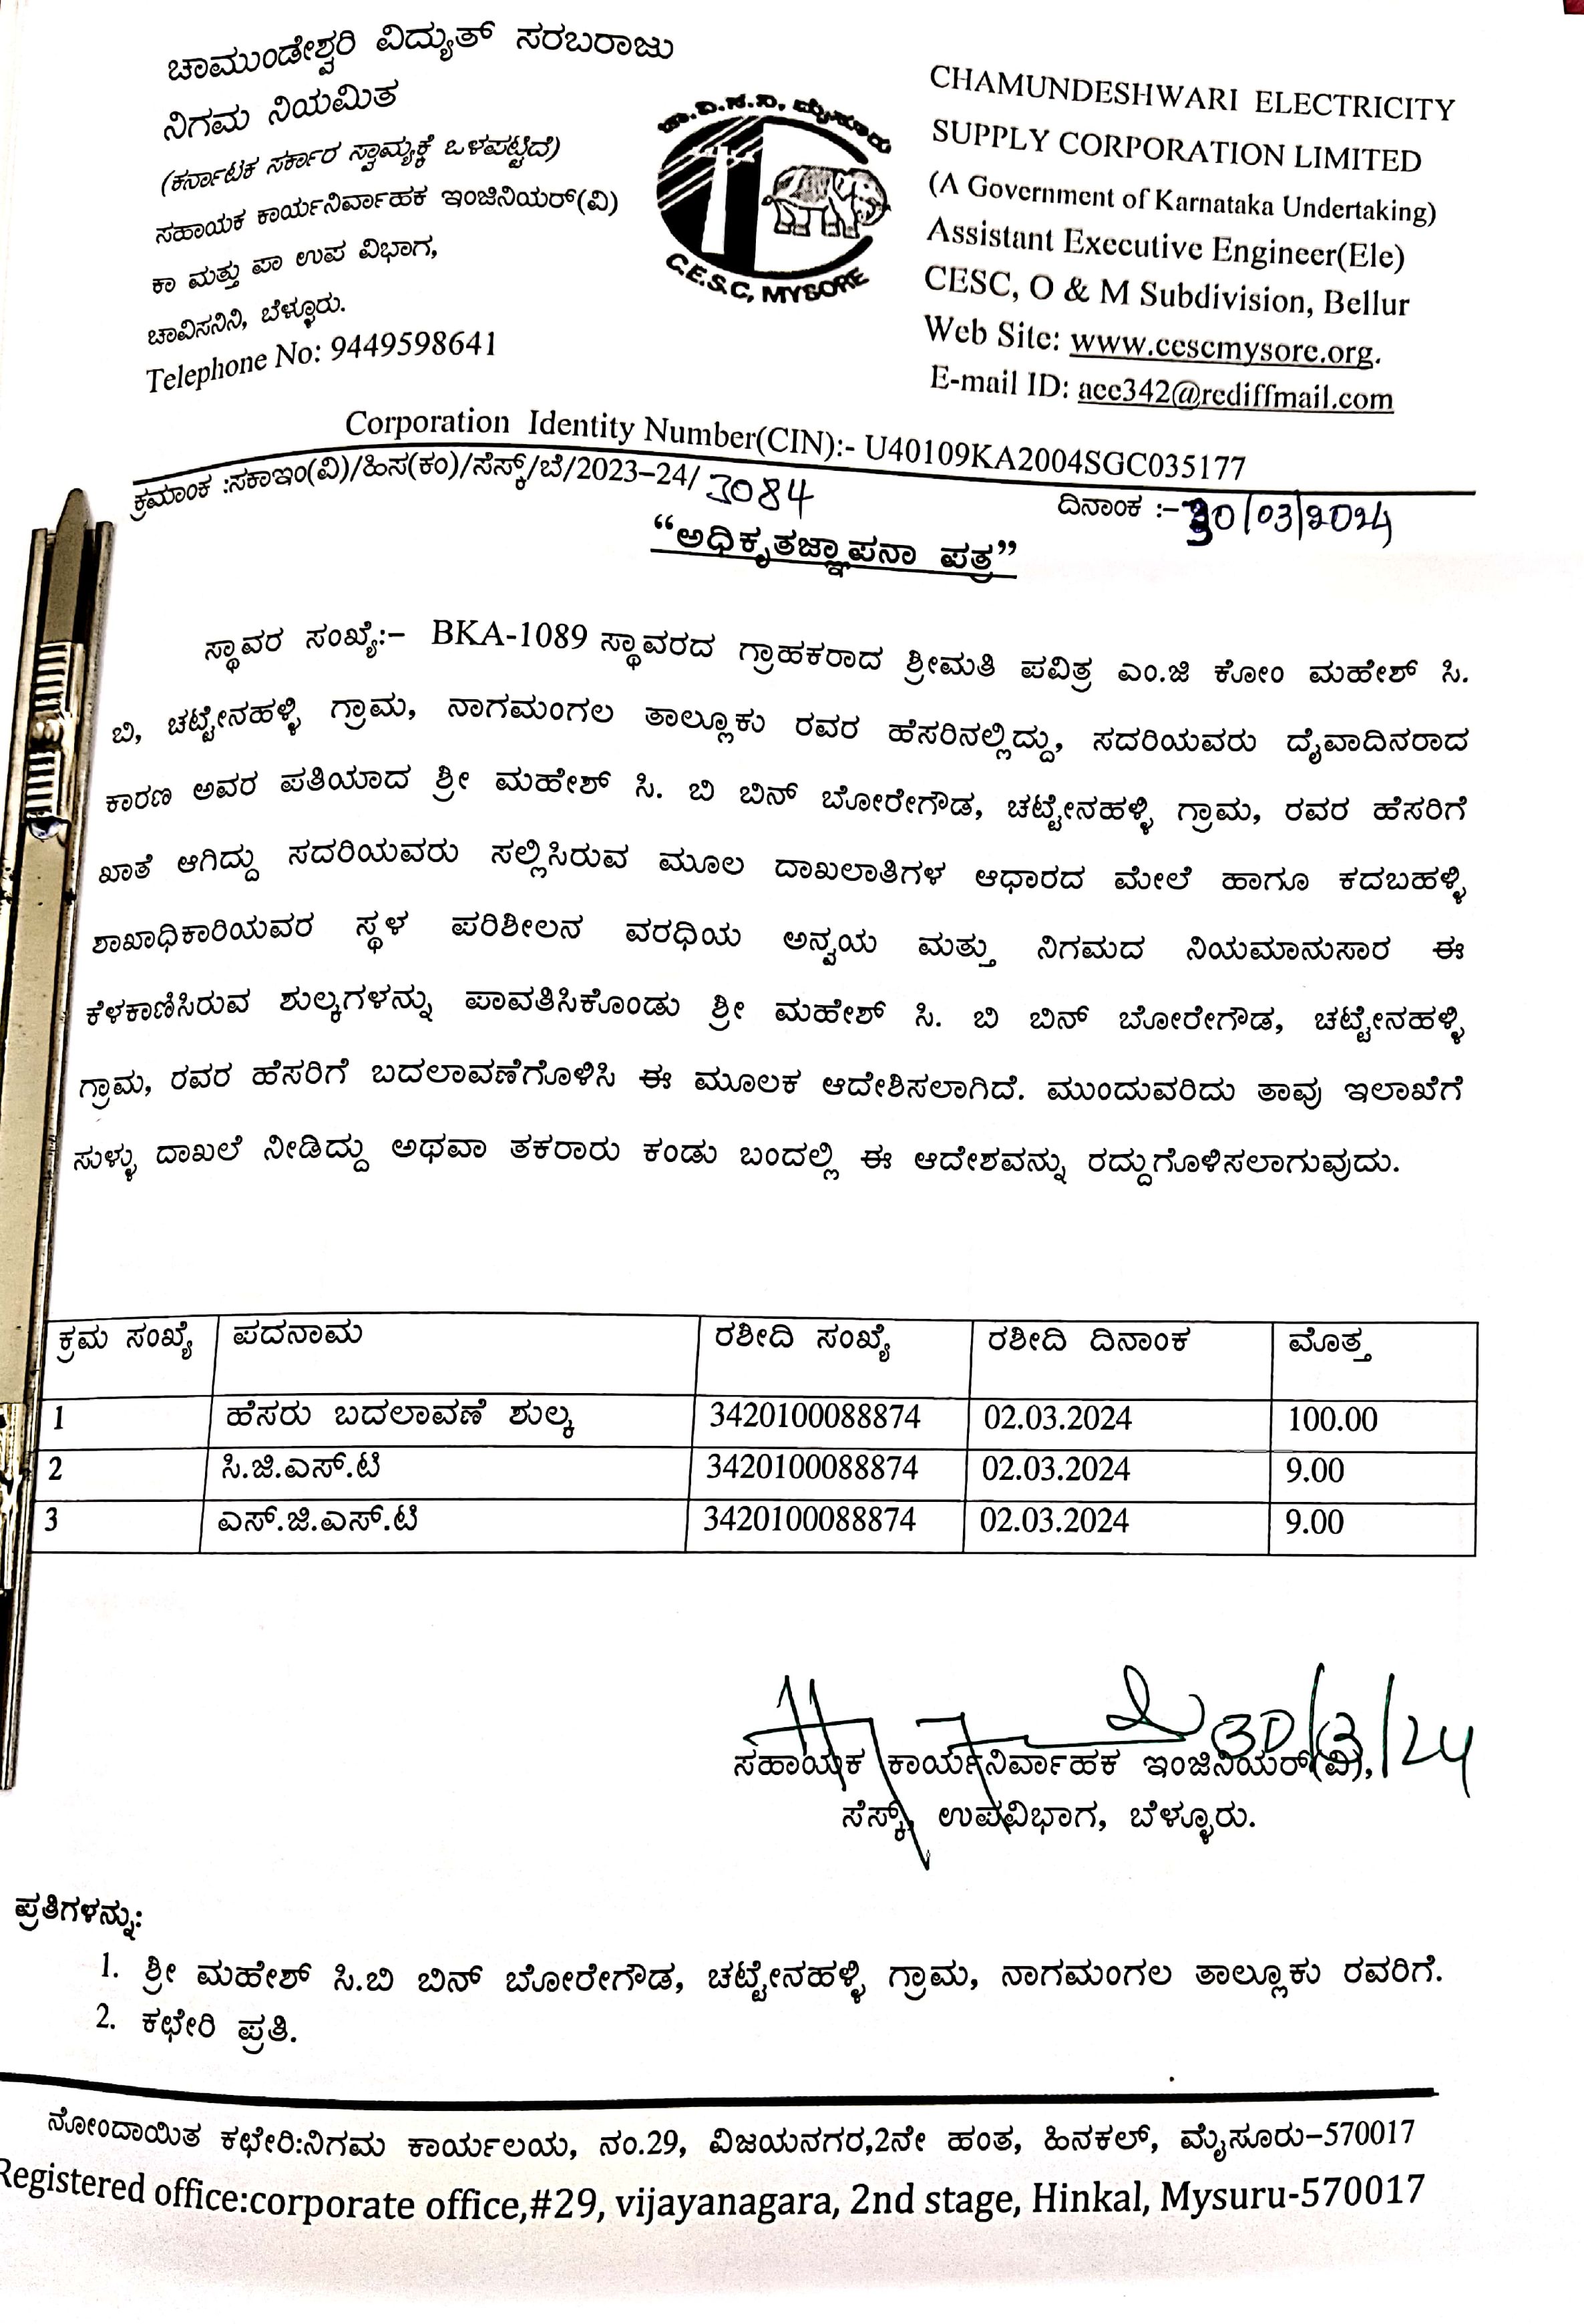 ಚಾಮುಂಡೇಶ್ವರಿ ವಿದ್ಯುತ್ ಸರಬರಾಜು
ನಿಗಮ ನಿಯಮಿತ
(ಕರ್ನಾಟಕ ಸರ್ಕಾರ ಸ್ವಾಮ್ಯಕ್ಕೆ ಒಳಪಟ್ಟಿದೆ)
ಸಹಾಯಕ ಕಾರ್ಯನಿರ್ವಾಹಕ ಇಂಜಿನಿಯರ್(ವಿ)
ಕಾ ಮತ್ತು ಪಾ ಉಪ ವಿಭಾಗ,
ಚಾವಿಸನಿನಿ, ಬೆಳ್ಳೂರು.
Telephone No: 9449598641
ಚಾ.ವಿ.ಸ.ನಿ. ಮೈಸೂರು
C.E.S.C, MYSORE
CHAMUNDESHWARI ELECTRICITY
SUPPLY CORPORATION LIMITED
(A Government of Karnataka Undertaking)
Assistant Executive Engineer(Ele)
CESC, O & M Subdivision, Bellur
Web Site: www.cescmysore.org.
E-mail ID: aee342@rediffmail.com
Corporation Identity Number(CIN):- U40109KA2004SGC035177
ಕ್ರಮಾಂಕ :ಸಕಾಇಂ(ವಿ)/ಹಿಸ(ಕಂ)/ಸೆಸ್ಕ್/ಬೆ/2023-24/ 3084
ದಿನಾಂಕ :-30/03/2024
“ಅಧಿಕೃತಜ್ಞಾಪನಾ ಪತ್ರ”
ಸ್ಥಾವರ ಸಂಖ್ಯೆ:- BKA-1089 ಸ್ಥಾವರದ ಗ್ರಾಹಕರಾದ ಶ್ರೀಮತಿ ಪವಿತ್ರ ಎಂ.ಜಿ ಕೋಂ ಮಹೇಶ್ ಸಿ.
ಬಿ, ಚಟ್ಟೇನಹಳ್ಳಿ ಗ್ರಾಮ, ನಾಗಮಂಗಲ ತಾಲ್ಲೂಕು ರವರ ಹೆಸರಿನಲ್ಲಿದ್ದು, ಸದರಿಯವರು ದೈವಾದಿನರಾದ
ಕಾರಣ ಅವರ ಪತಿಯಾದ ಶ್ರೀ ಮಹೇಶ್ ಸಿ. ಬಿ ಬಿನ್ ಬೋರೇಗೌಡ, ಚಟ್ಟೇನಹಳ್ಳಿ ಗ್ರಾಮ, ರವರ ಹೆಸರಿಗೆ
ಖಾತೆ ಆಗಿದ್ದು ಸದರಿಯವರು ಸಲ್ಲಿಸಿರುವ ಮೂಲ ದಾಖಲಾತಿಗಳ ಆಧಾರದ ಮೇಲೆ ಹಾಗೂ ಕದಬಹಳ್ಳಿ
ಶಾಖಾಧಿಕಾರಿಯವರ ಸ್ಥಳ ಪರಿಶೀಲನ ವರಧಿಯ ಅನ್ವಯ ಮತ್ತು ನಿಗಮದ ನಿಯಮಾನುಸಾರ ಈ
ಕೆಳಕಾಣಿಸಿರುವ ಶುಲ್ಕಗಳನ್ನು ಪಾವತಿಸಿಕೊಂಡು ಶ್ರೀ ಮಹೇಶ್ ಸಿ. ಬಿ ಬಿನ್ ಬೋರೇಗೌಡ, ಚಟ್ಟೇನಹಳ್ಳಿ
ಗ್ರಾಮ, ರವರ ಹೆಸರಿಗೆ ಬದಲಾವಣೆಗೊಳಿಸಿ ಈ ಮೂಲಕ ಆದೇಶಿಸಲಾಗಿದೆ. ಮುಂದುವರಿದು ತಾವು ಇಲಾಖೆಗೆ
ಸುಳ್ಳು ದಾಖಲೆ ನೀಡಿದ್ದು ಅಥವಾ ತಕರಾರು ಕಂಡು ಬಂದಲ್ಲಿ ಈ ಆದೇಶವನ್ನು ರದ್ದುಗೊಳಿಸಲಾಗುವುದು.
ಕ್ರಮ ಸಂಖ್ಯೆ ಪದನಾಮ ರಶೀದಿ ಸಂಖ್ಯೆ ರಶೀದಿ ದಿನಾಂಕ ಮೊತ್ತ
1 ಹೆಸರು ಬದಲಾವಣೆ ಶುಲ್ಕ 3420100088874 02.03.2024 100.00
2 ಸಿ.ಜಿ.ಎಸ್.ಟಿ 3420100088874 02.03.2024 9.00
3 ಎಸ್.ಜಿ.ಎಸ್.ಟಿ 3420100088874 02.03.2024 9.00
30/3/24
ಸಹಾಯಕ ಕಾರ್ಯನಿರ್ವಾಹಕ ಇಂಜಿನಿಯರ್(ವಿ),
ಸೆಸ್ಕ್, ಉಪವಿಭಾಗ, ಬೆಳ್ಳೂರು.
ಪ್ರತಿಗಳನ್ನು:
1. ಶ್ರೀ ಮಹೇಶ್ ಸಿ.ಬಿ ಬಿನ್ ಬೋರೇಗೌಡ, ಚಟ್ಟೇನಹಳ್ಳಿ ಗ್ರಾಮ, ನಾಗಮಂಗಲ ತಾಲ್ಲೂಕು ರವರಿಗೆ.
2. ಕಛೇರಿ ಪ್ರತಿ.
ನೋಂದಾಯಿತ ಕಛೇರಿ:ನಿಗಮ ಕಾರ್ಯಲಯ, ನಂ.29, ವಿಜಯನಗರ,2ನೇ ಹಂತ, ಹಿನಕಲ್, ಮೈಸೂರು-570017
Registered office:corporate office,#29, vijayanagara, 2nd stage, Hinkal, Mysuru-570017